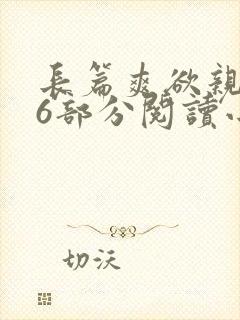 長篇爽欲親
6部分閱讀小
切沃